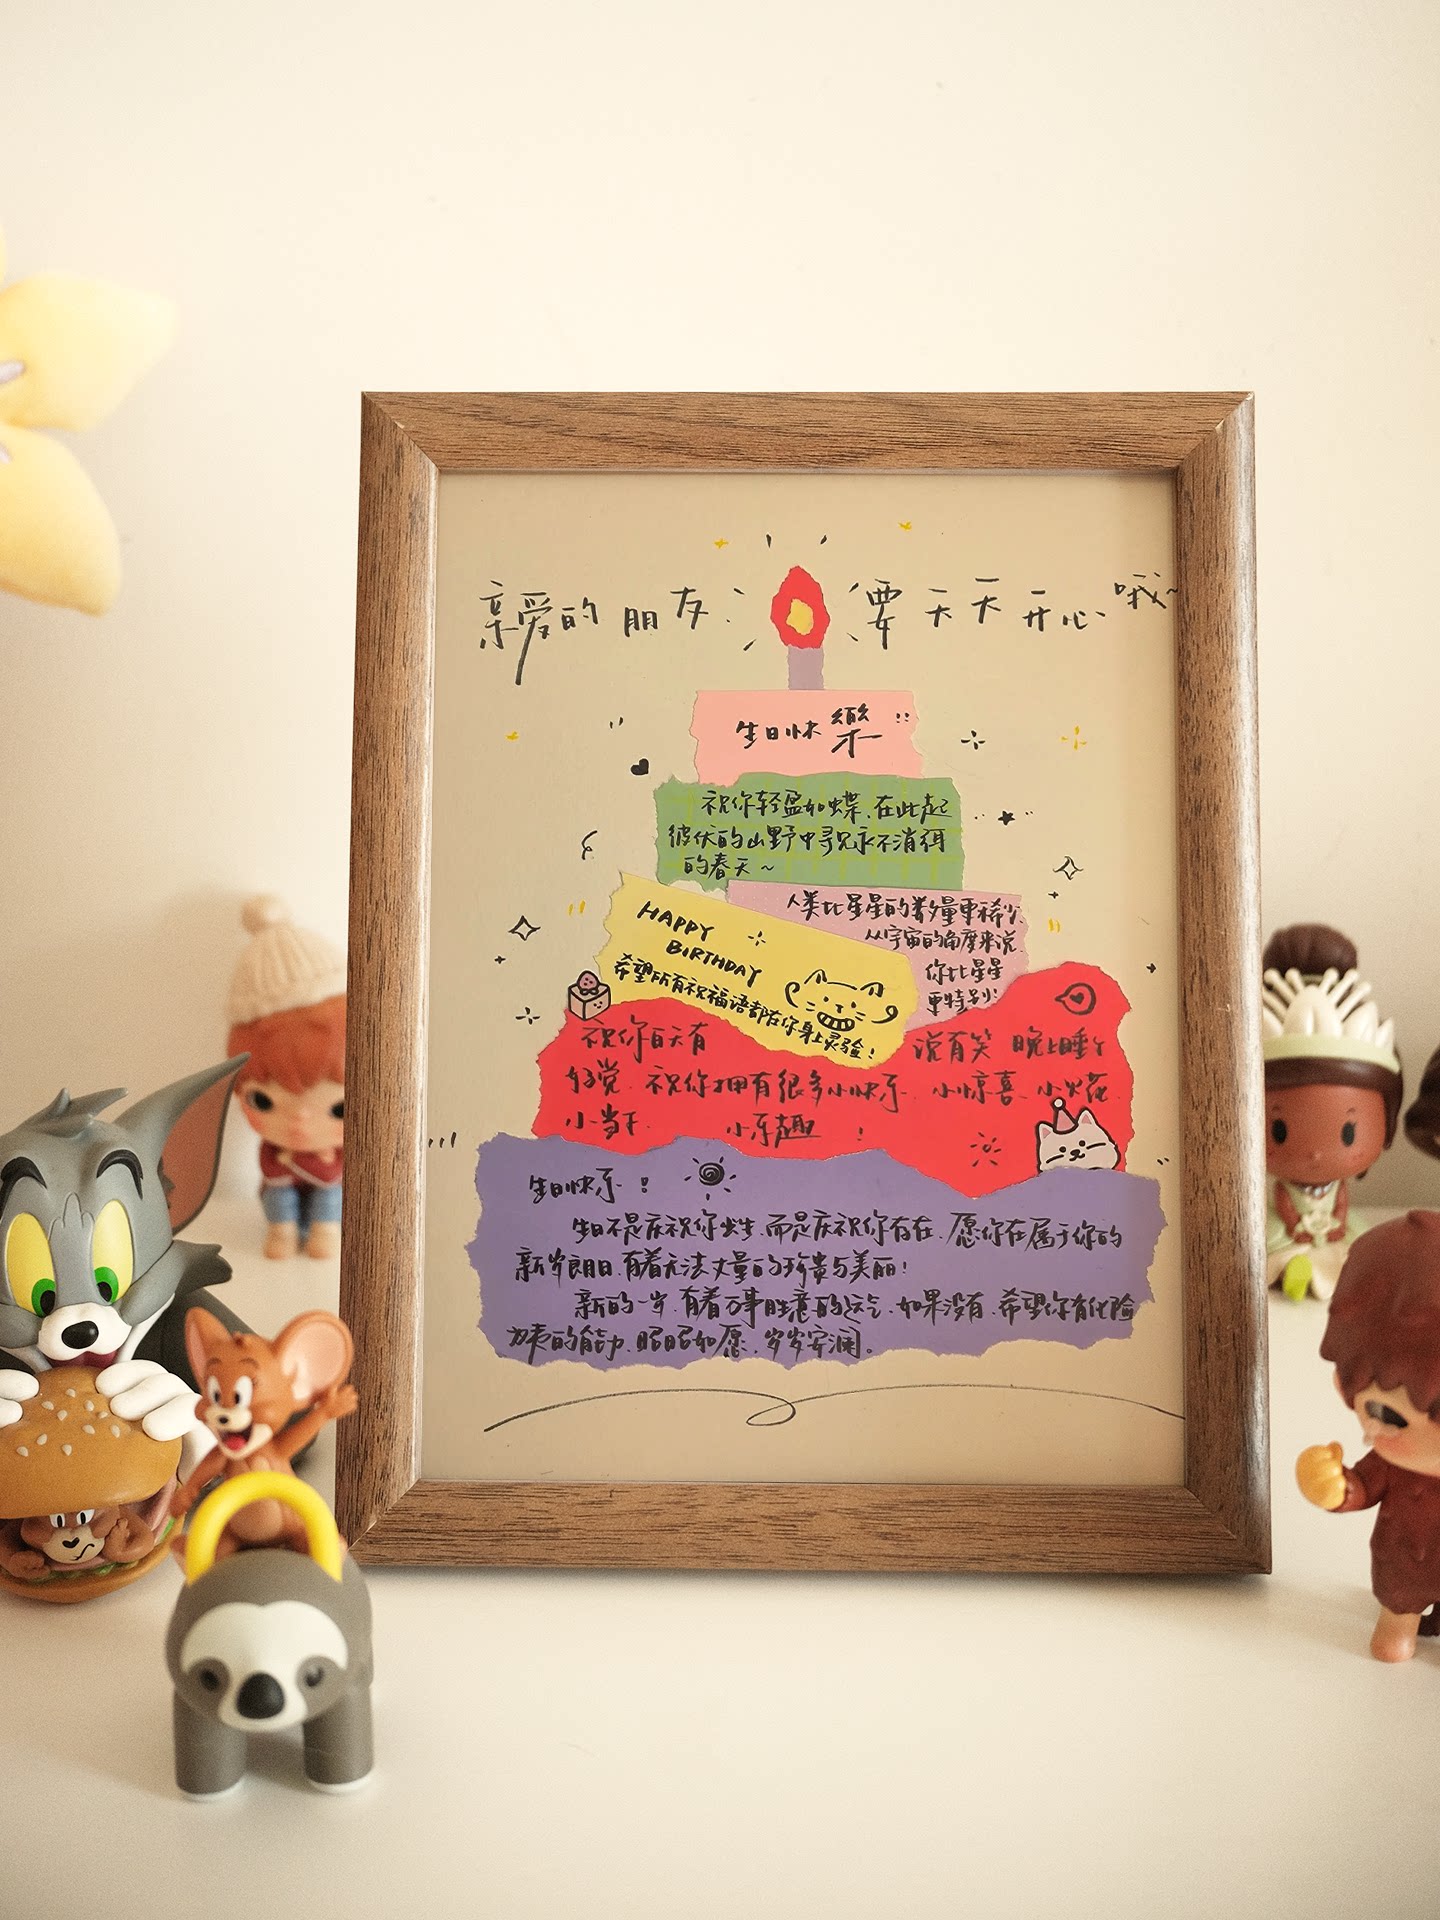 亲爱的朋友：要天天开心哦~
生日快樂!!
祝你轻盈如蝶、在此起
彼伏的山野中寻见永不消弭
的春天~
人类比星星的数量更稀少、
从宇宙的角度来说、
你比星星
更特别!
HAPPY
BIRTHDAY
希望所有祝福语都在你身上灵验!
祝你白天有说有笑 晚上睡个
好觉、祝你拥有很多小快乐、小惊喜、小火花
小当下、小乐趣!
生日快乐!
生日不是庆祝你出生、而是庆祝你存在、愿你在属于你的
新岁朗日、有着无法丈量的珍贵与美丽!
新的一岁、有着万事胜意的运气、如果没有、希望你有化险
为夷的能力、昭昭如愿、岁岁安澜。